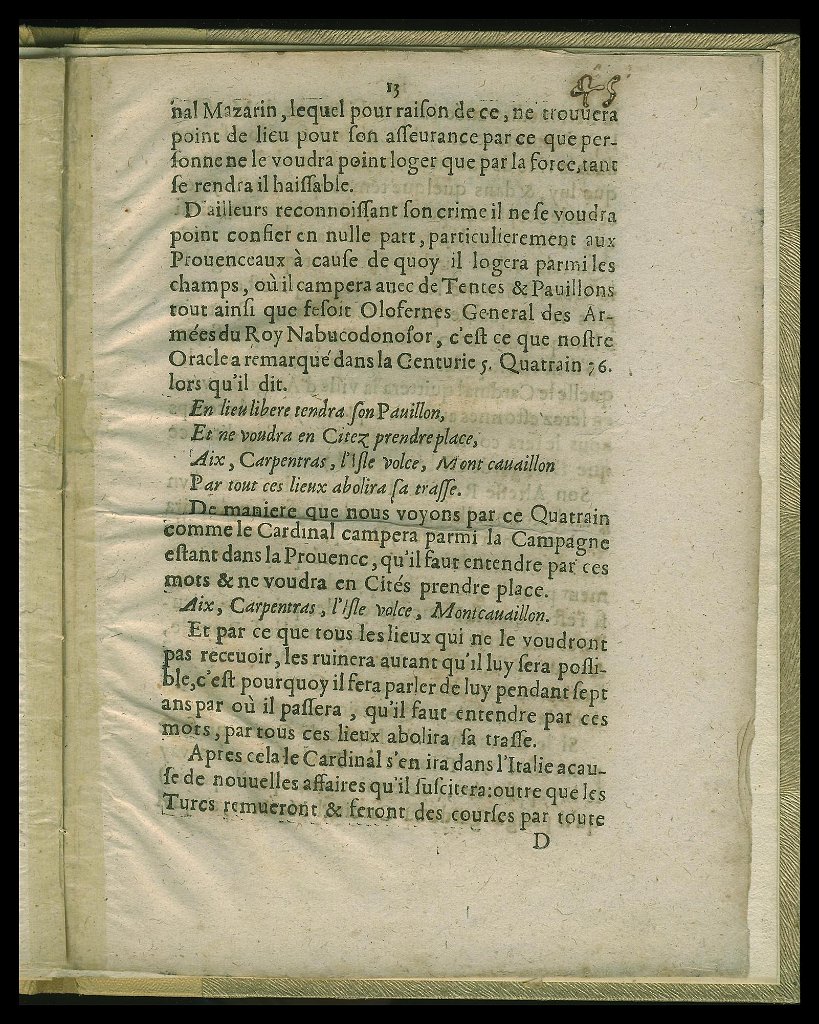 13
nal Mazarin, lequel pour raiſon de ce, ne trouuera
point de lieu pour ſon aſſeurance par ce que per-
ſonne ne le voudra point loger que par la force, tant
ſe rendra il haiſſable.
D'ailleurs reconnoiſſant ſon crime il ne ſe voudra
point confier en nulle part, particulierement aux
Prouenceaux à cauſe de quoy il logera parmi les
champs, où il campera auec de Tentes & Pauillons
tout ainſi que feſoit Olofernes General des Ar-
mées du Roy Nabucodonoſor, c'eſt ce que noſtre
Oracle a remarqué dans la Centurie 5. Quatrain 76.
lors qu'il dit.
En lieu libere tendra ſon Pauillon,
Et ne voudra en Citez prendre place,
Aix, Carpentras, l'Iſle volce, Mont cauaillon
Par tout ces lieux abolira ſa traſſe.
De maniere que nous voyons par ce Quatrain
comme le Cardinal campera parmi la Campagne
eſtant dans la Prouence, qu'il faut entendre par ces
mots & ne voudra en Cités prendre place.
Aix, Carpentras, l'Iſle volce, Montcauaillon.
Et par ce que tous les lieux qui ne le voudront
pas receuoir, les ruinera autant qu'il luy ſera poſſi-
ble, c'eſt pourquoy il fera parler de luy pendant ſept
ans par où il paſſera, qu'il faut entendre par ces
mots, par tous ces lieux abolira ſa traſſe.
Apres cela le Cardinal s'en ira dans l'Italie acau-
ſe de nouuelles affaires qu'il ſuſcitera: outre que les
Turcs remueront & feront des courſes par toute
D